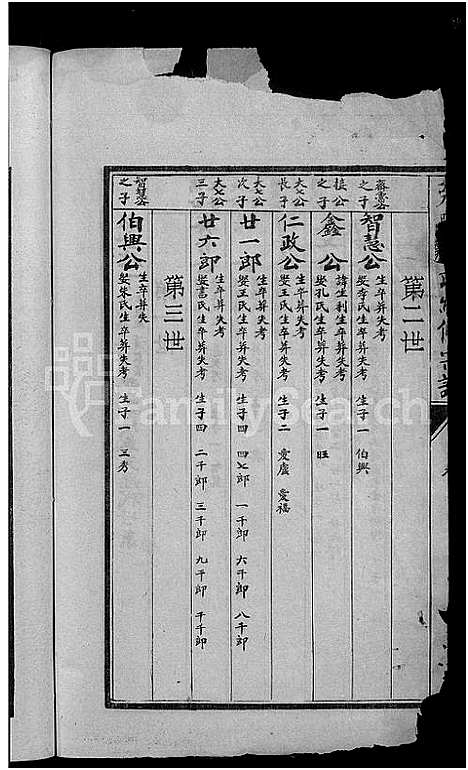 第二世
齋憲公之子
智慧公 生卒并失考
娶李氏生卒并失考 生子一 伯興
公之子
鑫公 諱生利生卒并失考
娶孔氏生卒并失考 生子一 旺
大七公長子
仁政公 生卒并失考
娶王氏生卒并失考 生子二 愛盧 愛福
大七公次子
廿一郎 生卒并失考
娶王氏生卒并失考 生子四 四七郎 一千郎 六千郎 八千郎
大七公三子
廿六郎 生卒并失考
娶袁氏生卒并失考 生子四 二千郎 三千郎 九千郎 千千郎
第三世
智慧公之子
伯興公 生卒并失
娶宋氏生卒并失考 生子一 三秀
FamilySearch